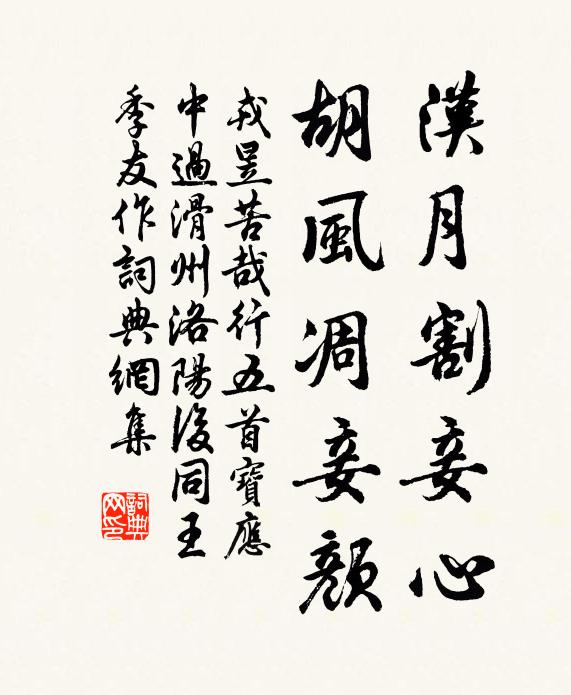 漢月割妾心
胡風凋妾顏
戎昱苦哉行五首寶應
中過滑州洛陽後同王
季友作詞典網集
詞典
网印